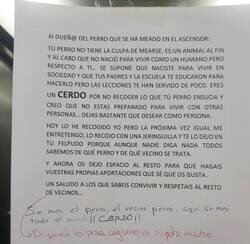 Al DUEÑ@ DEL PERRO QUE SE HA MEADO EN EL ASCENSOR:
TU PERRO NO TIENE LA CULPA DE MEARSE, ES UN ANIMAL AL FIN
Y AL CABO QUE NO NACIÓ PARA VIVIR COMO UN HUMANO PERO
RESPECTO A TI... SE SUPONE QUE NACISTE PARA VIVIR EN
SOCIEDAD Y QUE TUS PADRES Y LA ESCUELA TE EDUCARON PARA
HACERLO PERO LAS LECCIONES TE HAN SERVIDO DE POCO. ERES
UN CERDO POR NO RECOGER LO QUE TU PERRO ENSUCIA Y
CREO QUE NO ESTAS PREPARADO PARA VIVIR CON OTRAS
PERSONAS... DEJAS BASTANTE QUE DESEAR COMO PERSONA.
HOY LO HE RECOGIDO YO PERO LA PRÓXIMA VEZ IGUAL ME
ENTRETENGO, LO RECOJO CON UNA JERINGUILLA Y TE LO DEJO EN
TU FELPUDO PORQUE AUNQUE NADIE DIGA NADA TODOS
SABEMOS DE QUÉ PERRO Y DE QUÉ VECINO SE TRATA.
Y AHORA OS DEJO ESPACIO AL RESTO PARA QUE HAGAIS
VUESTRAS PROPIAS APORTACIONES SÉ QUE OS GUSTA.
UN SALUDO A LOS QUE SABEIS CONVIVIR Y RESPETAIS AL RESTO
DE VECINOS...
Se mea el perro, el vecino perro, aquí se mea
todo el mundo ¡¡CERDO!!
Di quién es para cagarme en su puta madre